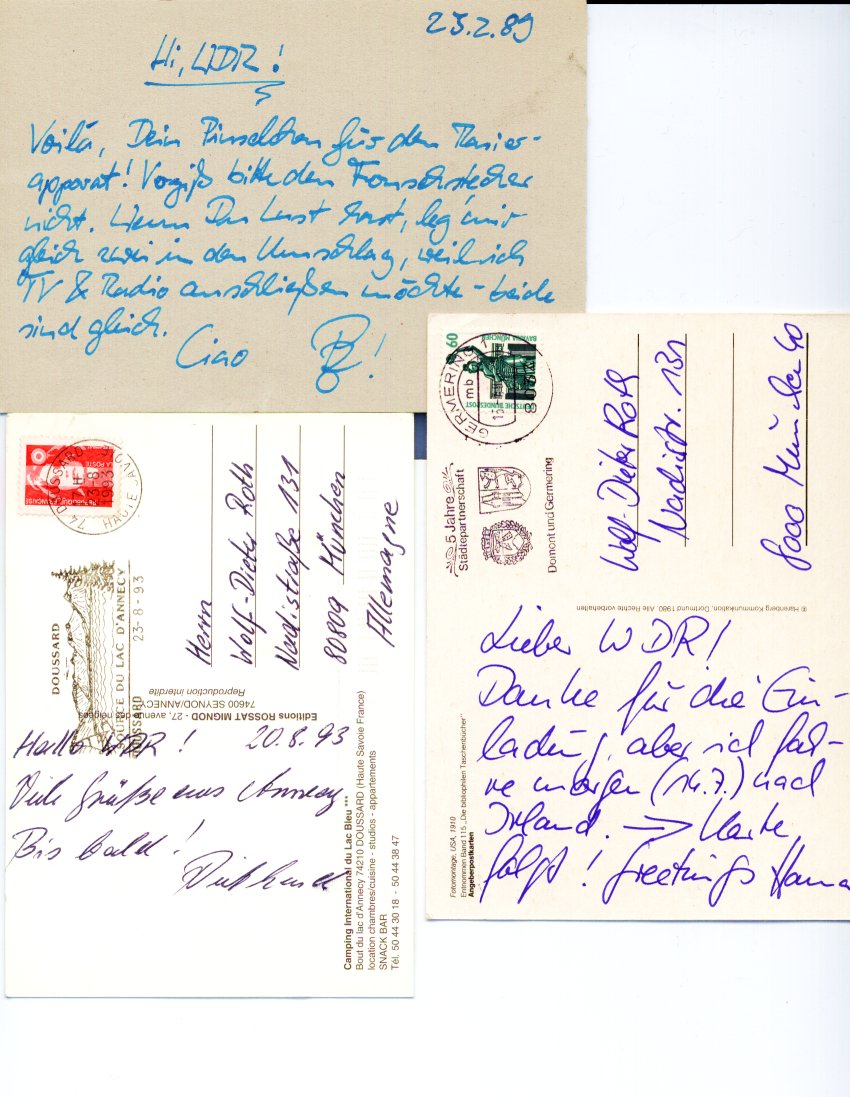 23.2.89
Hi, WDR!
Voilà, Dein Pinselchen für den Rasier-
apparat! Vergiß bitte den Fernsehstecher
nicht. Wenn Du Lust hast, leg' mir
gleich zwei in den Umschlag, weil ich
TV & Radio anschließen möchte - beide
sind gleich.
Ciao
60
BAVARIA MÜNCHEN
DEUTSCHE BUNDESPOST
GERMERING 1
mb
5 Jahre
Städtepartnerschaft
Domont und Germering
Wolf-Dieter Roth
Nadistr. 131
8000 München 40
© Harenberg Kommunikation, Dortmund 1980. Alle Rechte vorbehalten
Lieber WDR!
Danke für die Ein-
ladung, aber ich fah-
re morgen (14.7.) nach
Irland. → Karte
folgt! Greetings
Fotomontage, USA, 1910
Entnommen Band 115 „Die bibliophilen Taschenbücher"
Angeberpostkarten
LA POSTE
74 DOUSSARD
HAUTE SAVOIE
DOUSSARD
SOURCE DU LAC D'ANNECY
23-8-93
DOUSSARD
Herrn
Wolf-Dieter Roth
Nadistraße 131
80809 München
Allemagne
Editions ROSSAT MIGNOD - 27, avenue des neiges
74600 SEYNOD/ANNECY
Reproduction interdite
Hallo WDR! 20.8.93
Viele Grüße aus Annecy
Bis bald!
Camping International du Lac Bleu ***
Bout du lac d'Annecy 74210 DOUSSARD (Haute Savoie France)
location chambres/cuisine - studios - appartements
SNACK BAR
Tél. 50 44 30 18 - 50 44 38 47